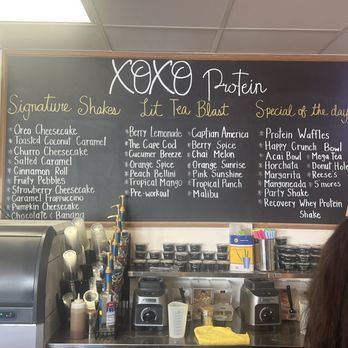 XOXO Protein
Signature Shakes
Oreo Cheesecake
Toasted Coconut Caramel
Churro Cheesecake
Salted Caramel
Cinnamon Roll
Fruity Pebbles
Strawberry Cheesecake
Caramel Frappuccino
Pumpkin Cheesecake
Chocolate & Banana
Lit Tea Blast
Berry Lemonade
The Cape Cod
Cucumber Breeze
Orange Spice
Peach Bellini
Tropical Mango
Pre-workout
Captian America
Berry Spice
Chai Melon
Orange Sunrise
Pink Sunshine
Tropical Punch
Malibu
Special of the day
Protein Waffles
Happy Crunch Bowl
Acai Bowl
Horchata
Margarita
Mangoneada
Party Shake
Recovery Whey Protein
Shake
Mega Tea
Donut Hole
Reese's
S'mores